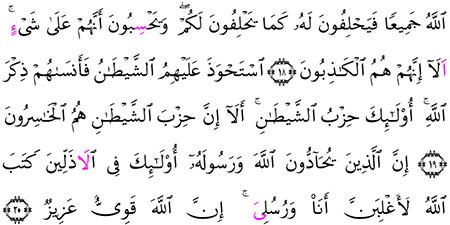 اللَّهُ جَمِيعًا فَيَحْلِفُونَ لَهُۥ كَمَا يَحْلِفُونَ لَكُمْ ۖ وَيَحْسِبُونَ أَنَّهُمْ عَلَىٰ شَىْءٍ ۚ
اَلَآ إِنَّهُمْ هُمُ الْكَاذِبُونَ ﴿١٨﴾ اسْتَحْوَذَ عَلَيْهِمُ الشَّيْطَانُ فَأَنسَاهُمْ ذِكْرَ
اللَّهِ ۚ أُوْلَـٰٓئِكَ حِزْبُ الشَّيْطَانِ ۚ أَلَآ إِنَّ حِزْبَ الشَّيْطَانِ هُمُ الْخَاسِرُونَ
﴿١٩﴾ إِنَّ الَّذِينَ يُحَآدُّونَ اللَّهَ وَرَسُولَهُۥٓ أُوْلَـٰٓئِكَ فِى الَاذَلِّينَ كَتَبَ
اللَّهُ لَأَغْلِبَنَّ أَنَا۠ وَرُسُلِىَ ۚ إِنَّ اللَّهَ قَوِىٌّ عَزِيزٌ ﴿٢٠﴾